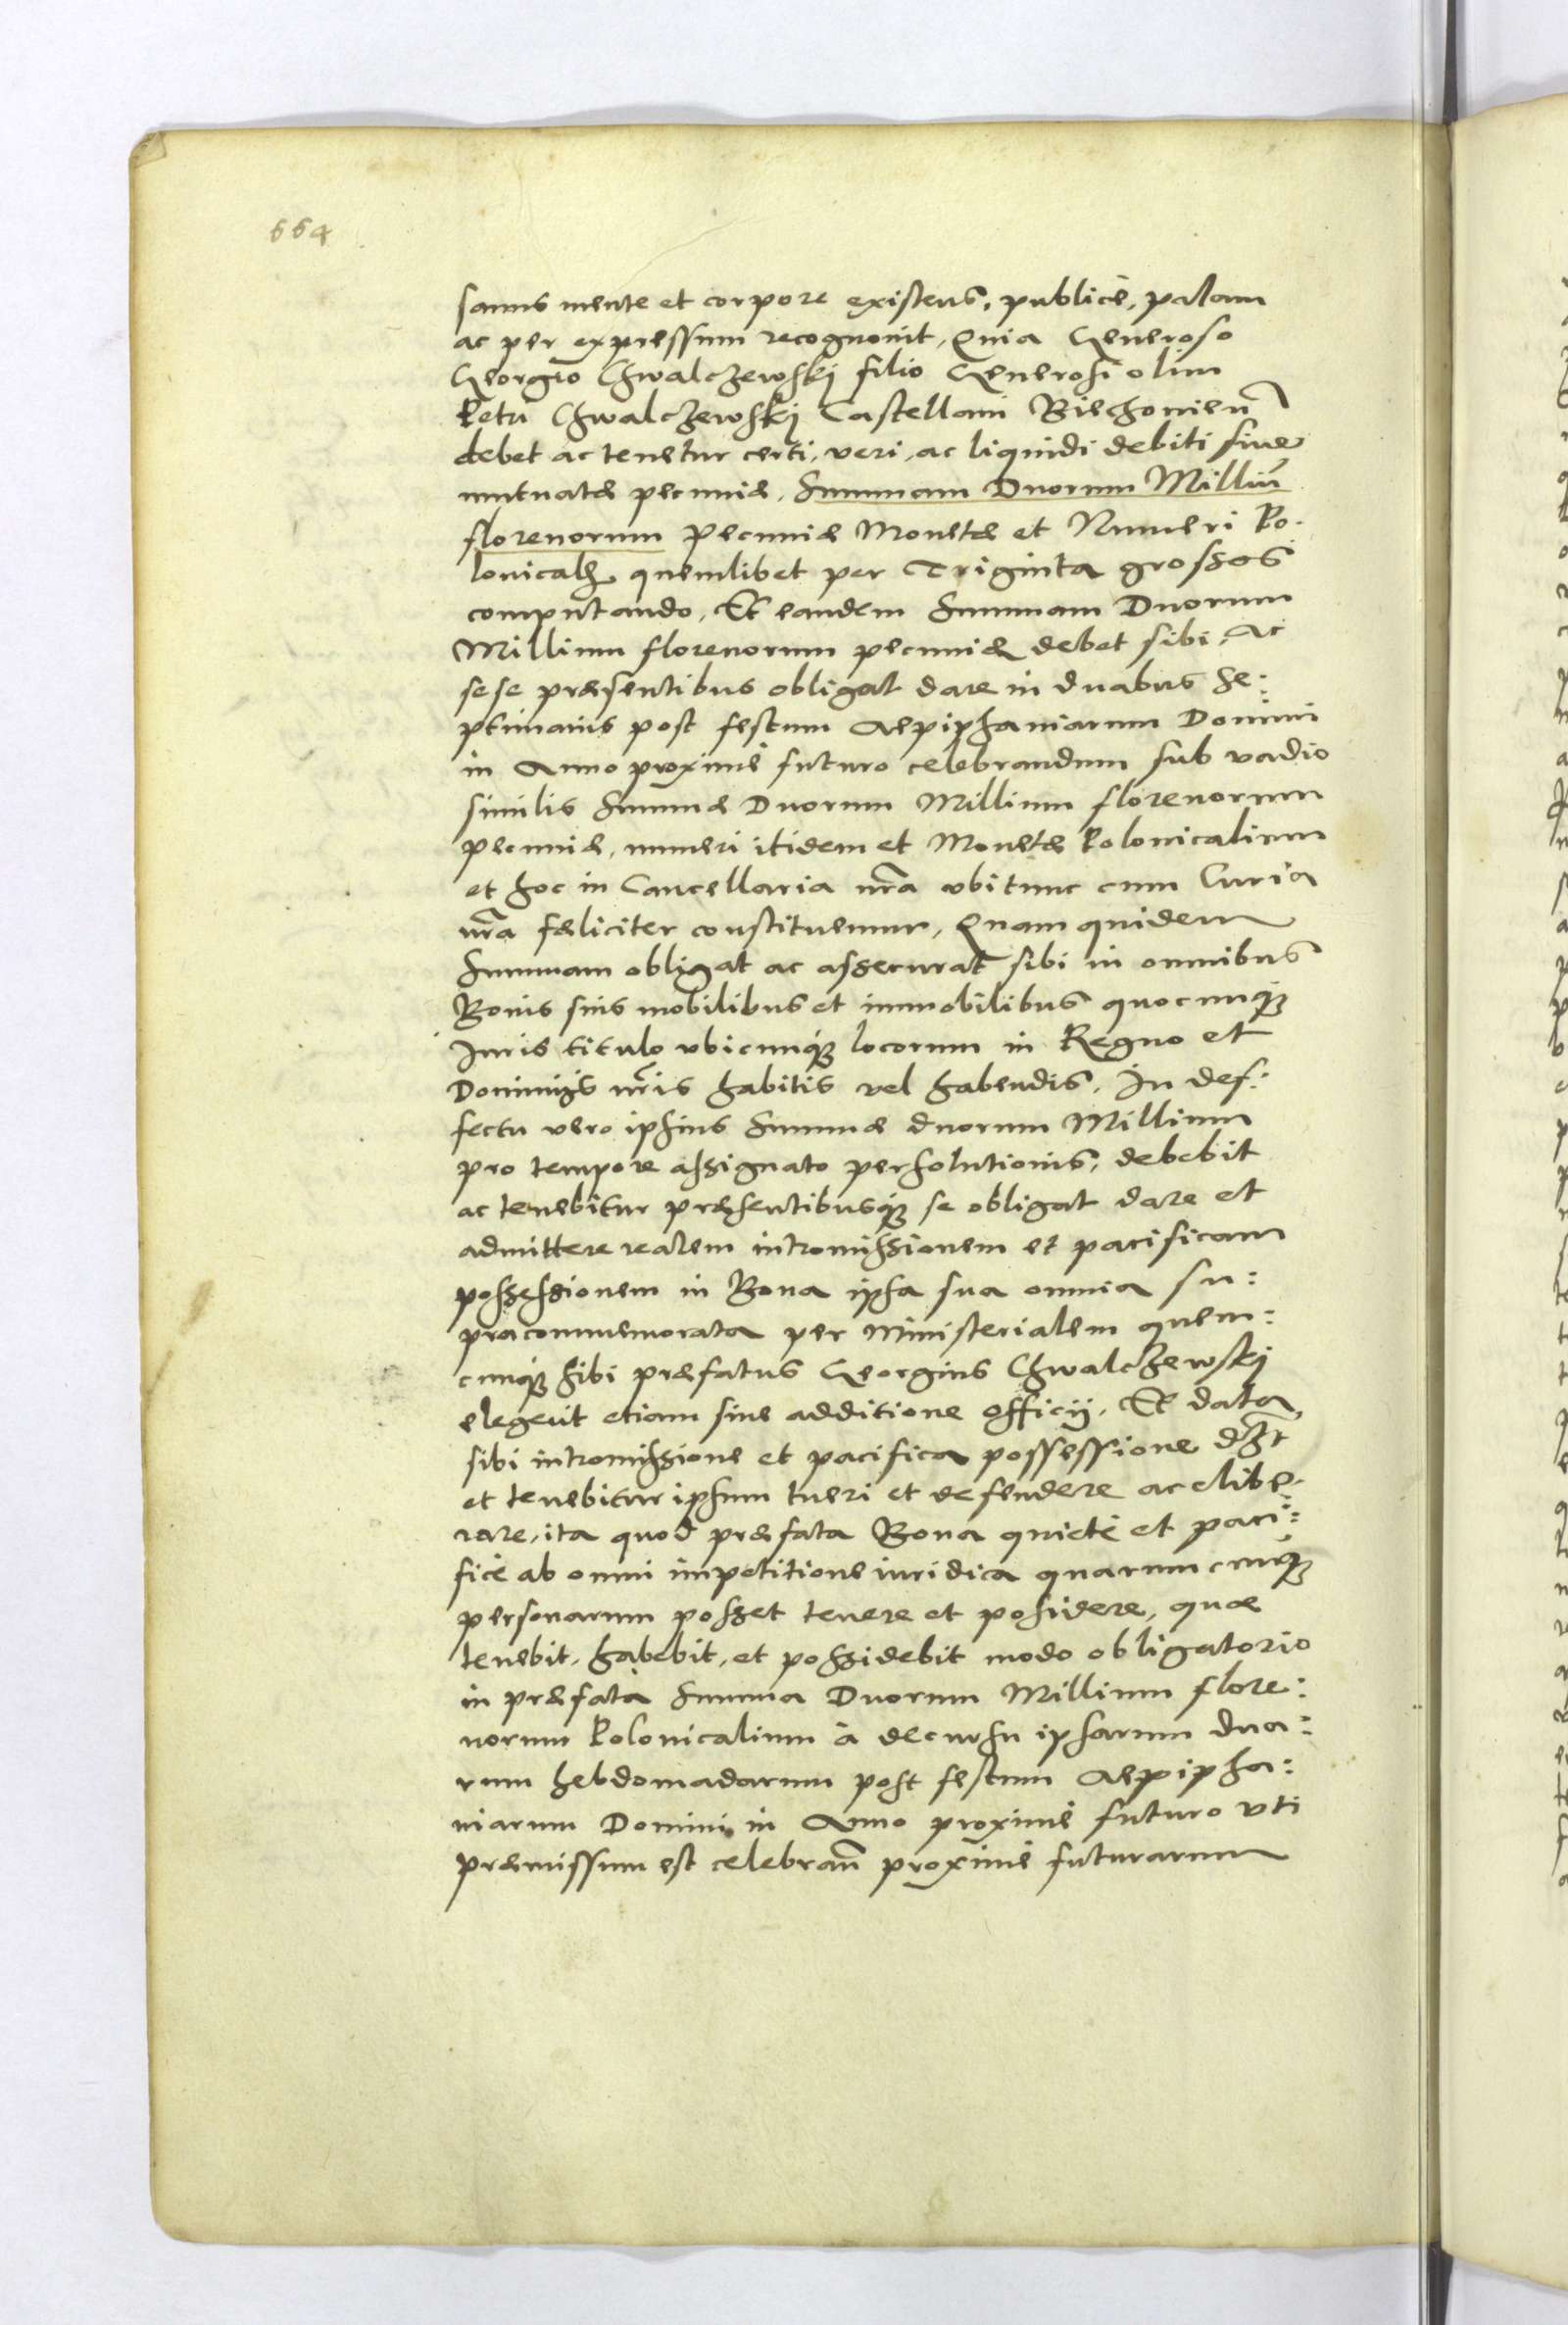 664
sanus mente et corpore existens, publicè, palam
ac per expressum recognovit, Quia Generoso
Georgio Chwalczewskj filio Generosi olim
Petri Chwalczewskj Castellani Biechovien̄
debet ac tenetur certi, veri, ac liquidi debiti sive
mutuatæ pecuniæ, Summam Duorum Milliū
florenorum Pecuniæ Monetæ et Numeri Po-
lonicalẜ, quemlibet per Triginta grossos
computando, Et eandem Summam Duorum
Millium florenorum pecuniæ debet sibi, Ac
sese præsentibus obligat dare in duabus Se:
ptimanis post festum Aepiphaniarum Domini
in Anno proximè futuro celebrandum sub vadio
similis Summæ Duorum Millium florenorum
pecuniæ, numeri itidem et Monetæ Polonicalium
et hoc in Cancellaria nr̄a ubi tunc cum Curia
nr̄a fæliciter constituemur, Quam quidem
Summam obligat ac assecurat sibi in omnibus
Bonis suis mobilibus et immobilibus quocunq́ꝫ
Juris titulo ubicunq́ꝫ locorum in Regno et
Dominijs nr̄is habitis vel habendis. In def:
fectu vero ipsius Summæ duorum Millium
pro tempore assignato persolutionis, debebit
ac tenebitur præsentibusq́ꝫ se obligat dare et
admittere realem intromissionem et pacificam
possessionem in Bona ipsa sua omnia su:
pracommemorata per Ministerialem quem:
cunq́ꝫ sibi præfatus Georgius Chwalczewskj
elegerit etiam sine additione officij. Et data
sibi intromissione et pacifica possessione dꝫt
et tenebitur ipsum tueri et defendere ac elibe-
rare, ita quod præfata Bona quietè et paci:
ficè ab omni impetitione iuridica quarumcunq́ꝫ
personarum posset tenere et possidere, quæ
tenebit, habebit, et possidebit modo obligatorio
in præfata Summa Duorum Millium flore:
norum Polonicalium à decursu ipsarum dua:
rum hebdomadarum post festum Aepipha:
niarum Domini in Anno proximè futuro uti
præmissum est celebran̄ proximè futurarum